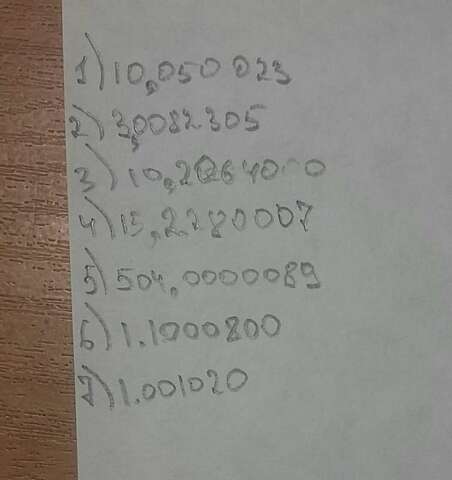 1) 10,050 023
2) 3,0082305
3)
4) 15,2280007
5) 504,0000089
6) 1.1000800
7) 1.001020